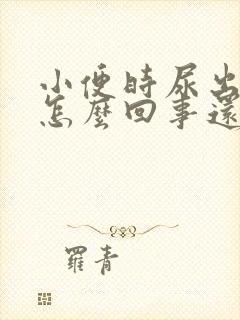 小便時尿出
怎麼回事還
羅青